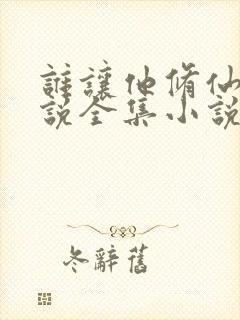 誰讓他脩仙
說全集小說
冬辭舊